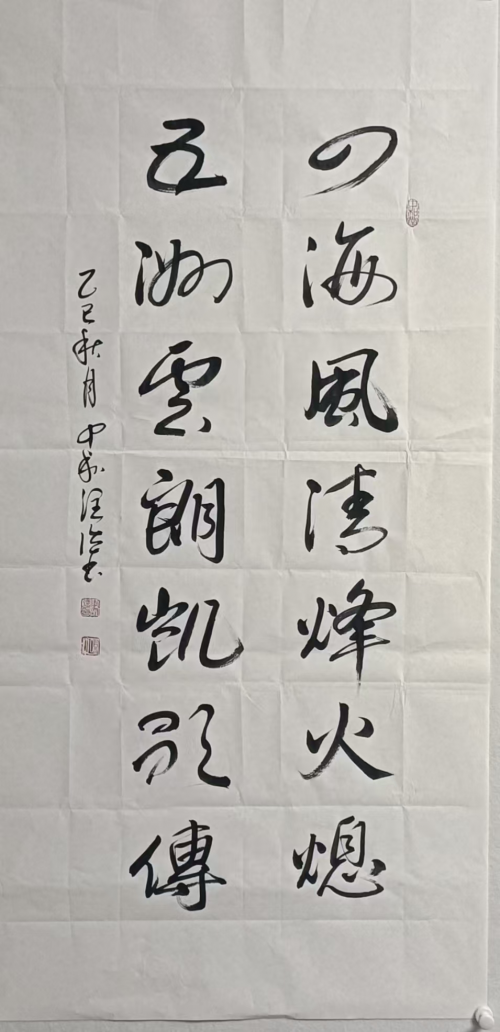 四海風清烽火熄
五洲雲朗凱歌傳
乙巳秋月 中成汪治書